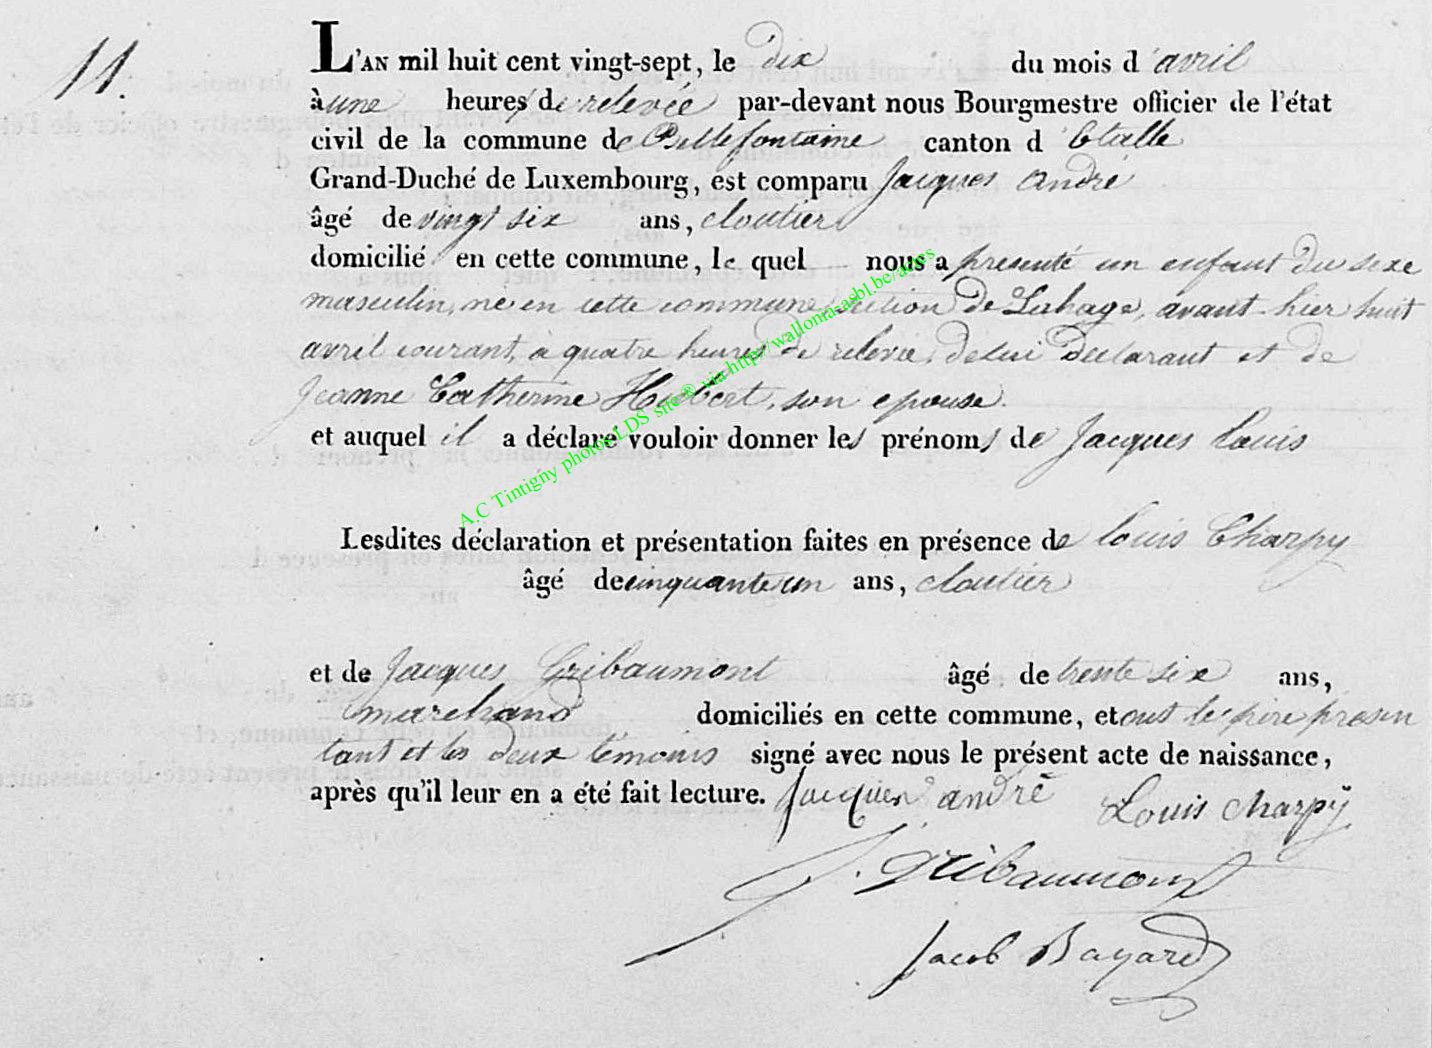 11.
L'AN mil huit cent vingt-sept, le dix du mois d'avril
à une heures de relevée par-devant nous Bourgmestre officier de l'état
civil de la commune de Bellefontaine canton d'Etalle
Grand-Duché de Luxembourg, est comparu Jacques André
âgé de vingt six ans, cloutier
domicilié en cette commune, le quel nous a presenté un enfant du sexe
masculin, né en cette commune, section de Lahage, avant-hier huit
avril courant, à quatre heures de relevée, de lui declarant et de
Jeanne Catherine Hubert, son epouse.
et auquel il a déclaré vouloir donner les prénoms de Jacques Louis
A.C Tintigny photos LDS site® via http://wallonia-asbl.be/actes
Lesdites déclaration et présentation faites en présence de Louis Charpy
âgé de cinquante un ans, cloutier
et de Jacques Gribaumont âgé de trente six ans,
marchand domiciliés en cette commune, et ont le père présen
tant et les deux témoins signé avec nous le présent acte de naissance,
après qu'il leur en a été fait lecture. Jacques andré Louis Charpÿ
J. Gribaumont
Jacob Bayard